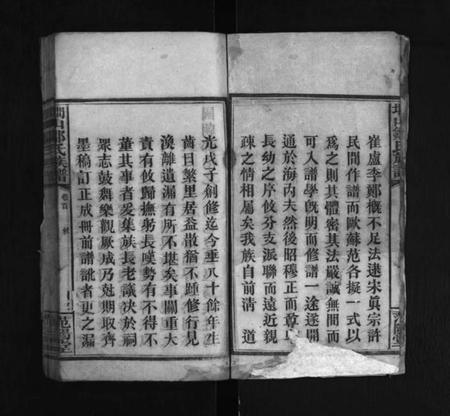 崔盧李鄭概不足法逮宋眞宗許
民間作譜而歐蘇范各擬一式以
爲之則其體密其法嚴誠無間而
可入譜學旣明而修譜一途遂開
通於海內夫然後昭穆正而尊
長幼之序攸分支派聯而遠近親
疎之情相屬矣我族自前淸 道
光戊子創修迄今垂八十餘年生
齒日繁里居益散猶不踵修行見
渙離遺漏有所不堪矣事關重大
責有攸歸撫躬長嘆勢有不得不
董其事者爰集族長老議決於祠
眾志鼓舞樂觀厥成乃尅期取齊
墨稿訂正成冊前譜訛者更之漏
氏族譜
卷首